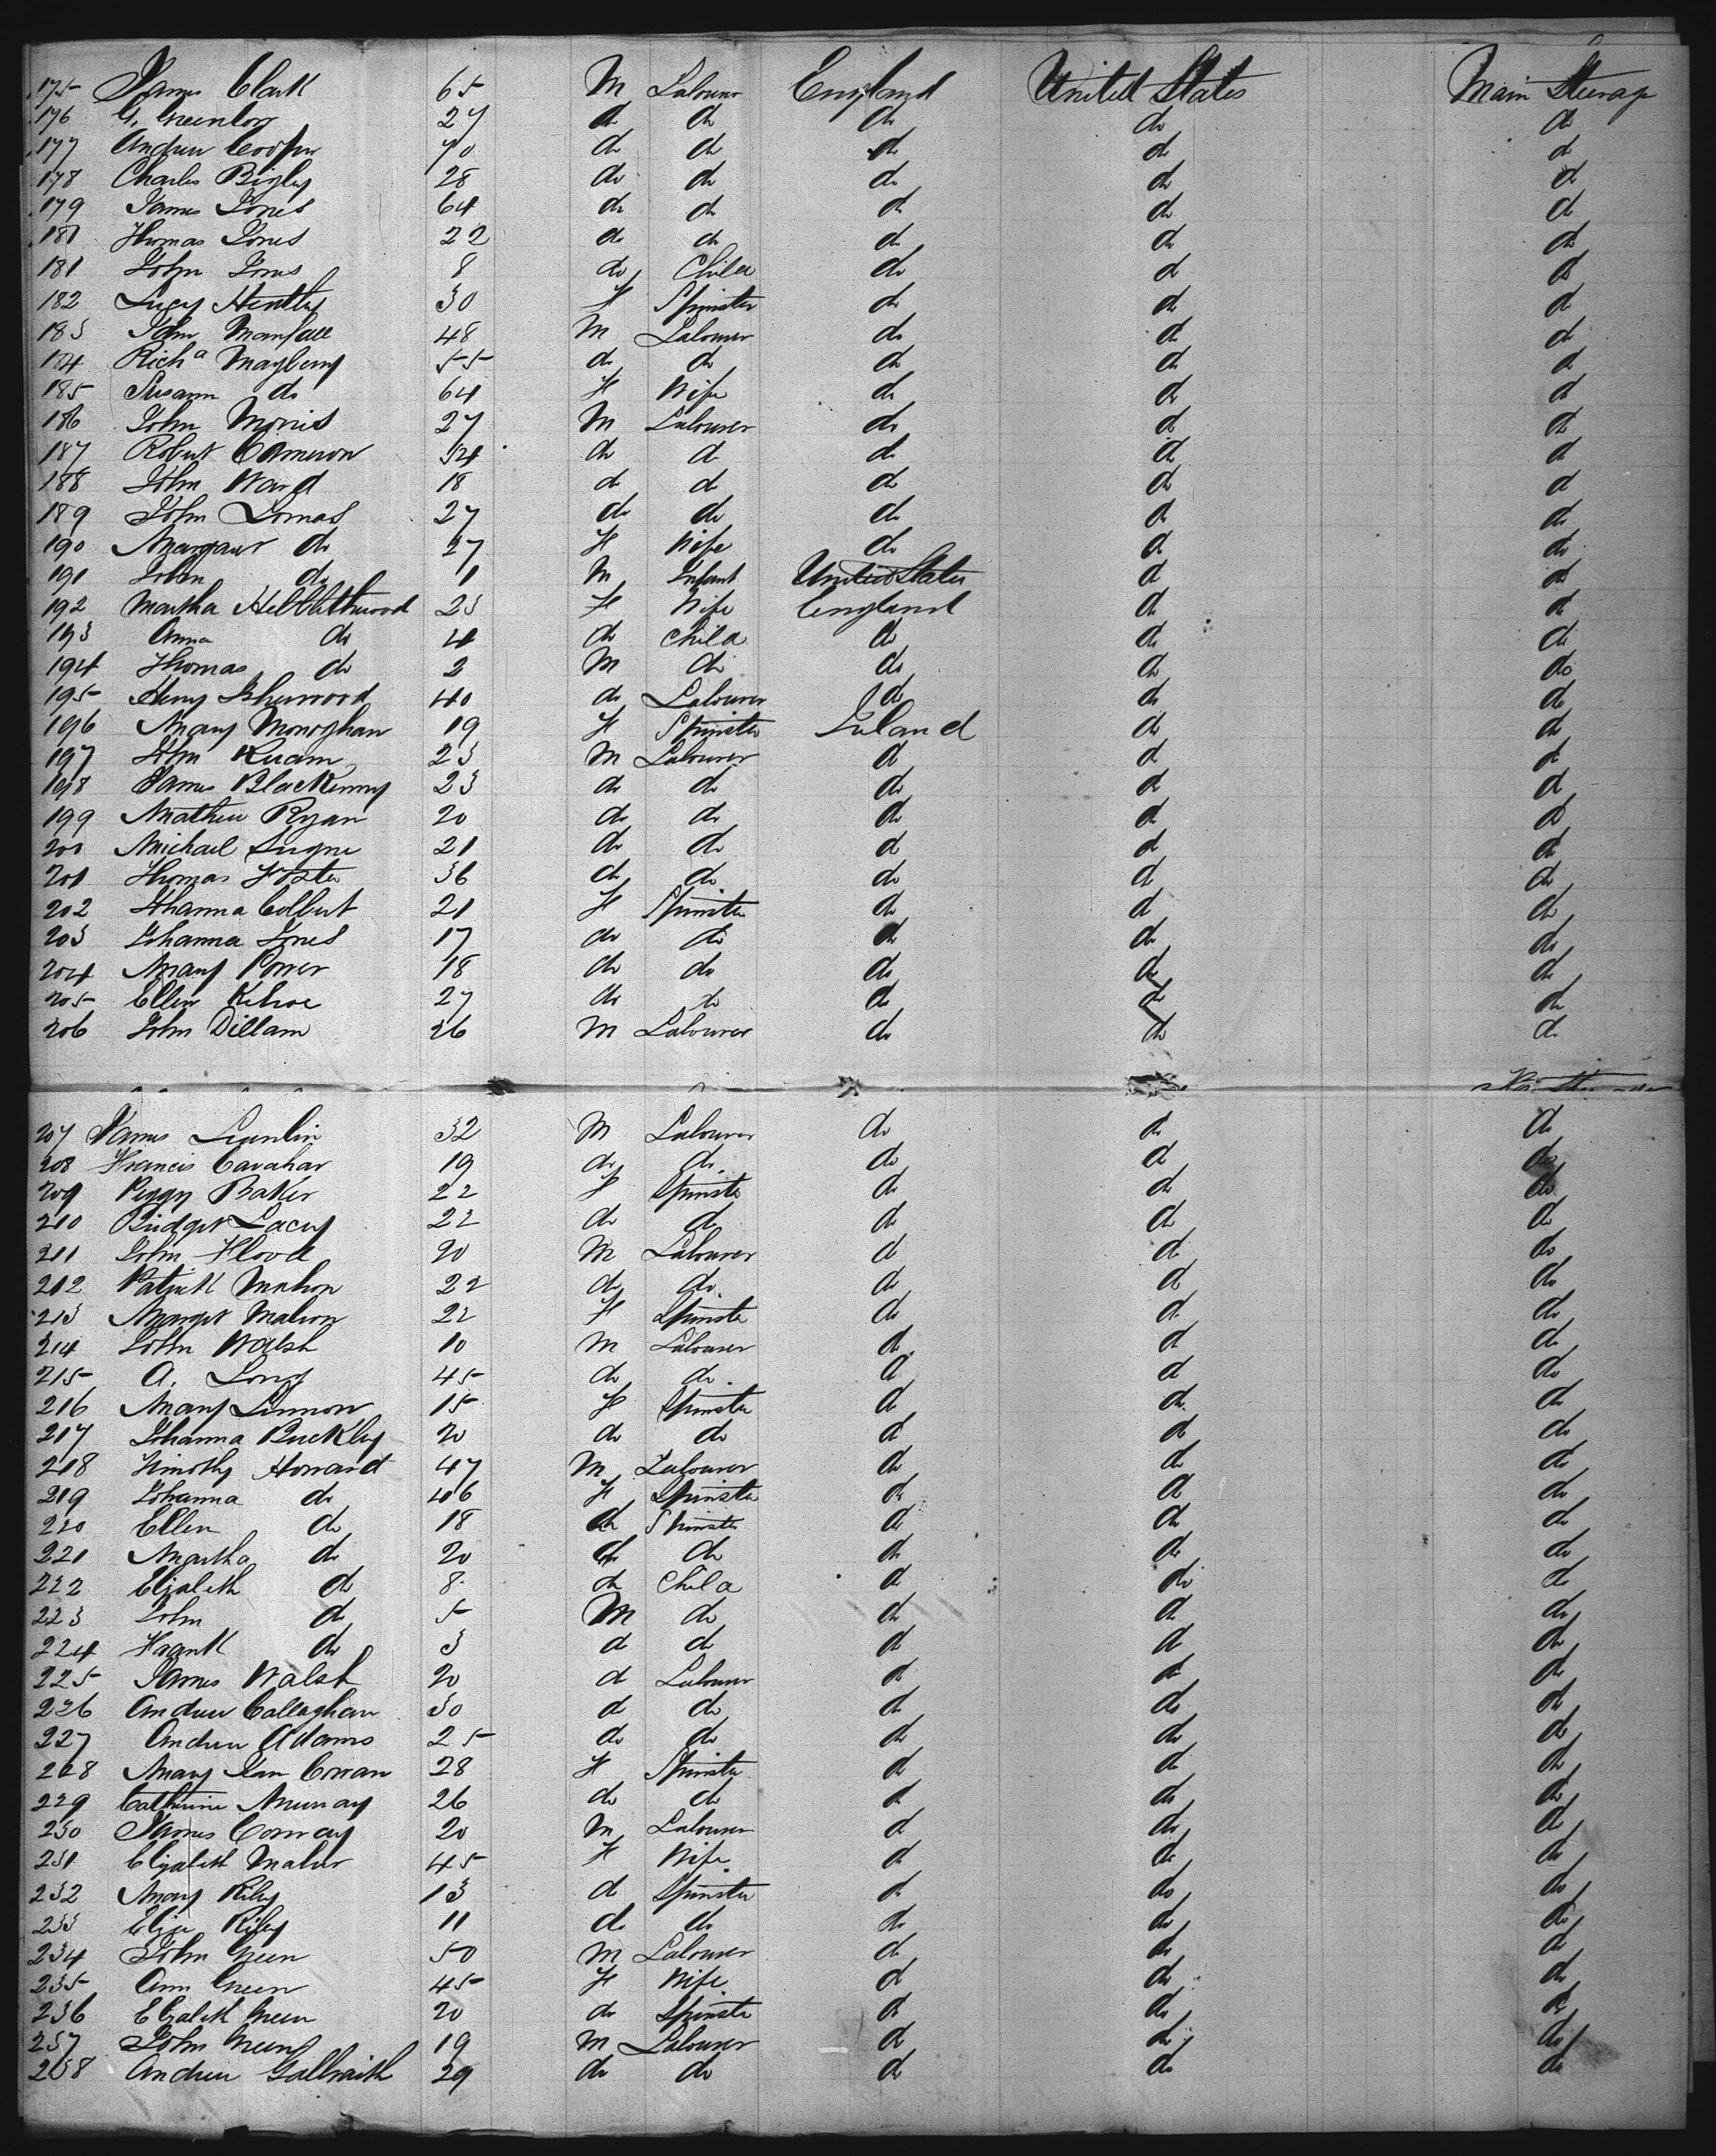 175 James Clark 65 M Labourer England United States Main Steerage
176 G. Greenlow 27 do do do do do
177 Andrew Cooper 70 do do do do do
178 Charles Bigley 28 do do do do do
179 James Jones 64 do do do do do
180 Thomas Jones 22 do do do do do
181 John Jones 8 do Child do do do
182 Lucy Huntley 30 F Spinster do do do
183 John 48 M Labourer do do do
184 Richd Mayberry 55 do do do do do
185 Susann do 64 F Wife do do do
186 John Morris 27 M Labourer do do do
187 Robert Cameron 34 do do do do do
188 John Ward 18 do do do do do
189 John Lomas 27 do do do do do
190 Margaret do 27 F Wife do do do
191 John do 1 M Infant United States do do
192 Martha Hebblethwood 23 F Wife England do do
193 Anna do 4 do Child do do do
194 Thomas do 2 M do do do do
195 Henry Isherwood 40 do Labourer do do do
196 Mary Monoghan 19 F Spinster Ireland do do
197 John 23 M Labourer do do do
198 James Blackenny 23 do do do do do
199 Mathew Ryan 20 do do do do do
200 Michael 21 do do do do do
201 Thomas Foster 36 do do do do do
202 Johanna Colbert 21 F Spinster do do do
203 Johanna Jones 17 do do do do do
204 Mary Power 18 do do do do do
205 Ellen Kehoe 27 do do do do do
206 John Dillam 26 M Labourer do do do
207 James 32 M Labourer do do do
208 Francis Cavahar 19 do do do do do
209 Peggy Baker 22 F Spinster do do do
210 Bridget Lacey 22 do do do do do
211 John Flood 20 M Labourer do do do
212 Patrick Mahon 22 do do do do do
213 Margret Mahon 22 F Spinster do do do
214 John Walsh 10 M Labourer do do do
215 A. Long 45 do do do do do
216 Mary Linnon 15 F Spinster do do do
217 Johanna Buckley 20 do do do do do
218 Timothy Howard 47 M Labourer do do do
219 Johanna do 46 F Spinster do do do
220 Ellen do 18 do Spinster do do do
221 Martha do 20 do do do do do
222 Elizabeth do 8 do Child do do do
223 John do 5 M do do do do
224 do 3 do do do do do
225 James Walsh 20 do Labourer do do do
226 Andrew Callaghan 30 do do do do do
227 Andrew Adams 25 do do do do do
228 Mary Jane Cowan 28 F Spinster do do do
229 Catherine Murray 26 do do do do do
230 James Conway 20 M Labourer do do do
231 Elizabeth Maher 45 F Wife do do do
232 Mary Riley 13 do Spinster do do do
233 Eliza Riley 11 do do do do do
234 John Green 50 M Labourer do do do
235 Ann Green 45 F Wife do do do
236 Elizabeth Green 20 do Spinster do do do
237 John Green 19 M Labourer do do do
238 Andrew Galbraith 29 do do do do do